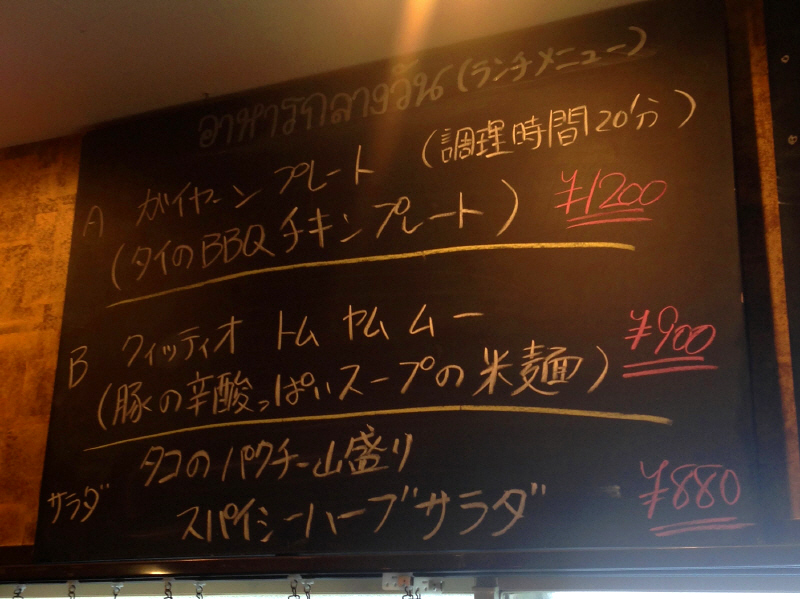 อาหารกลางวัน (ランチメニュー)
A ガイヤーン プレート (調理時間20分)
(タイのBBQチキンプレート) ¥1200
B クィッティオ トム ヤム ムー ¥900
(豚の辛酸っぱいスープの米麺)
サラダ タコのパクチー山盛り
スパイシーハーブサラダ ¥880